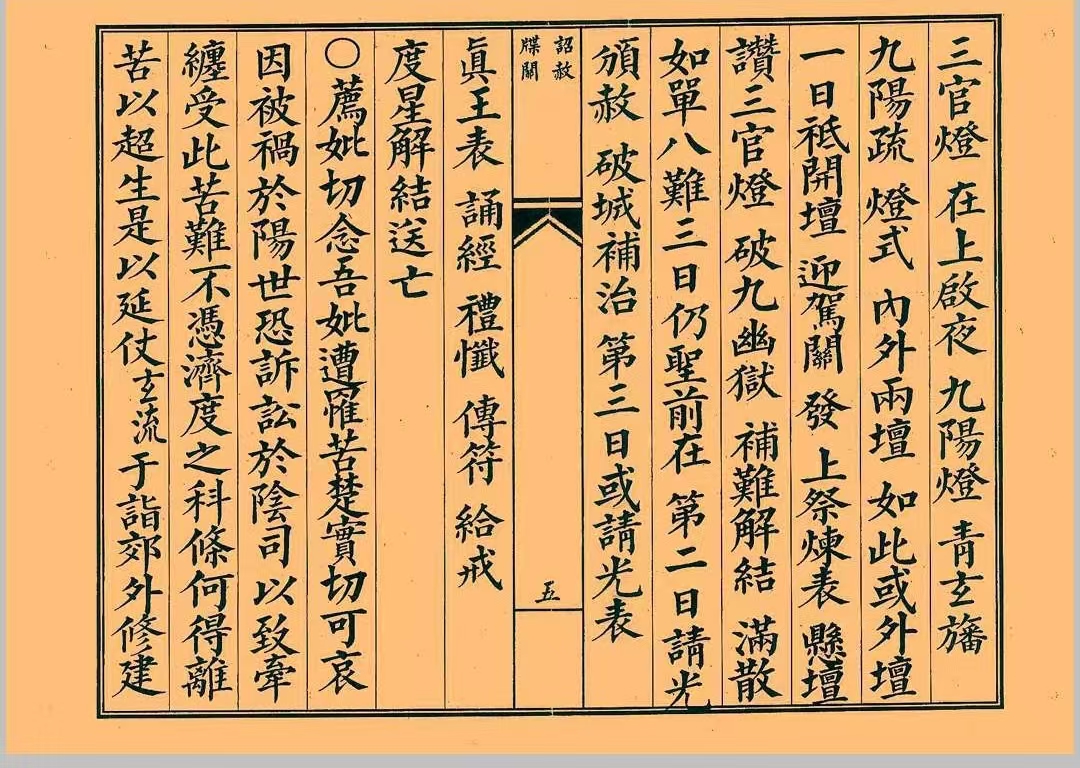 三官燈 在上啟夜 九陽燈 青玄旛
九陽疏 燈式 內外兩壇 如此或外壇
一日祗開壇 迎駕關 發 上祭煉表 懸壇
讚三官燈 破九幽獄 補難解結 滿散
如單八難三日仍聖前在 第二日請光
頒赦 破城補治 第三日或請光表
詔赦
牒關
五
眞王表 誦經 禮懺 傳符 給戒
度星解結送亡
○薦妣切念吾妣遭罹苦楚實切可哀
因被禍於陽世恐訴訟於陰司以致牽
纏受此苦難不憑濟度之科條何得離
苦以超生是以延仗玄流于詣郊外修建